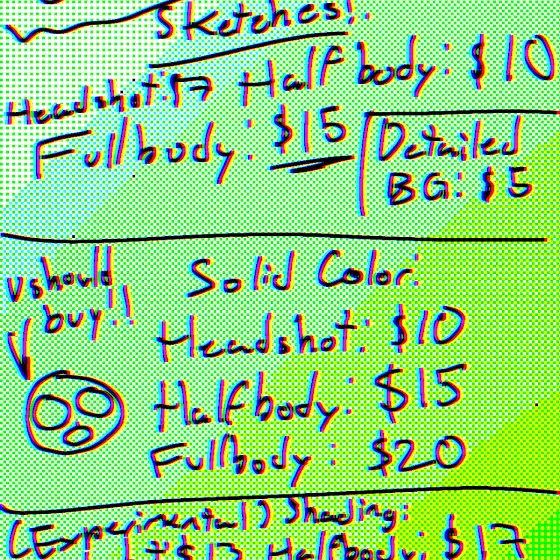 Sketches!
Headshot: $7 Halfbody: $10
Fullbody: $15
Detailed
BG: $5
u should
buy!!
Solid Color:
Headshot: $10
Halfbody: $15
Fullbody: $20
(Experimental) Shading:
$13 Halfbody: $17